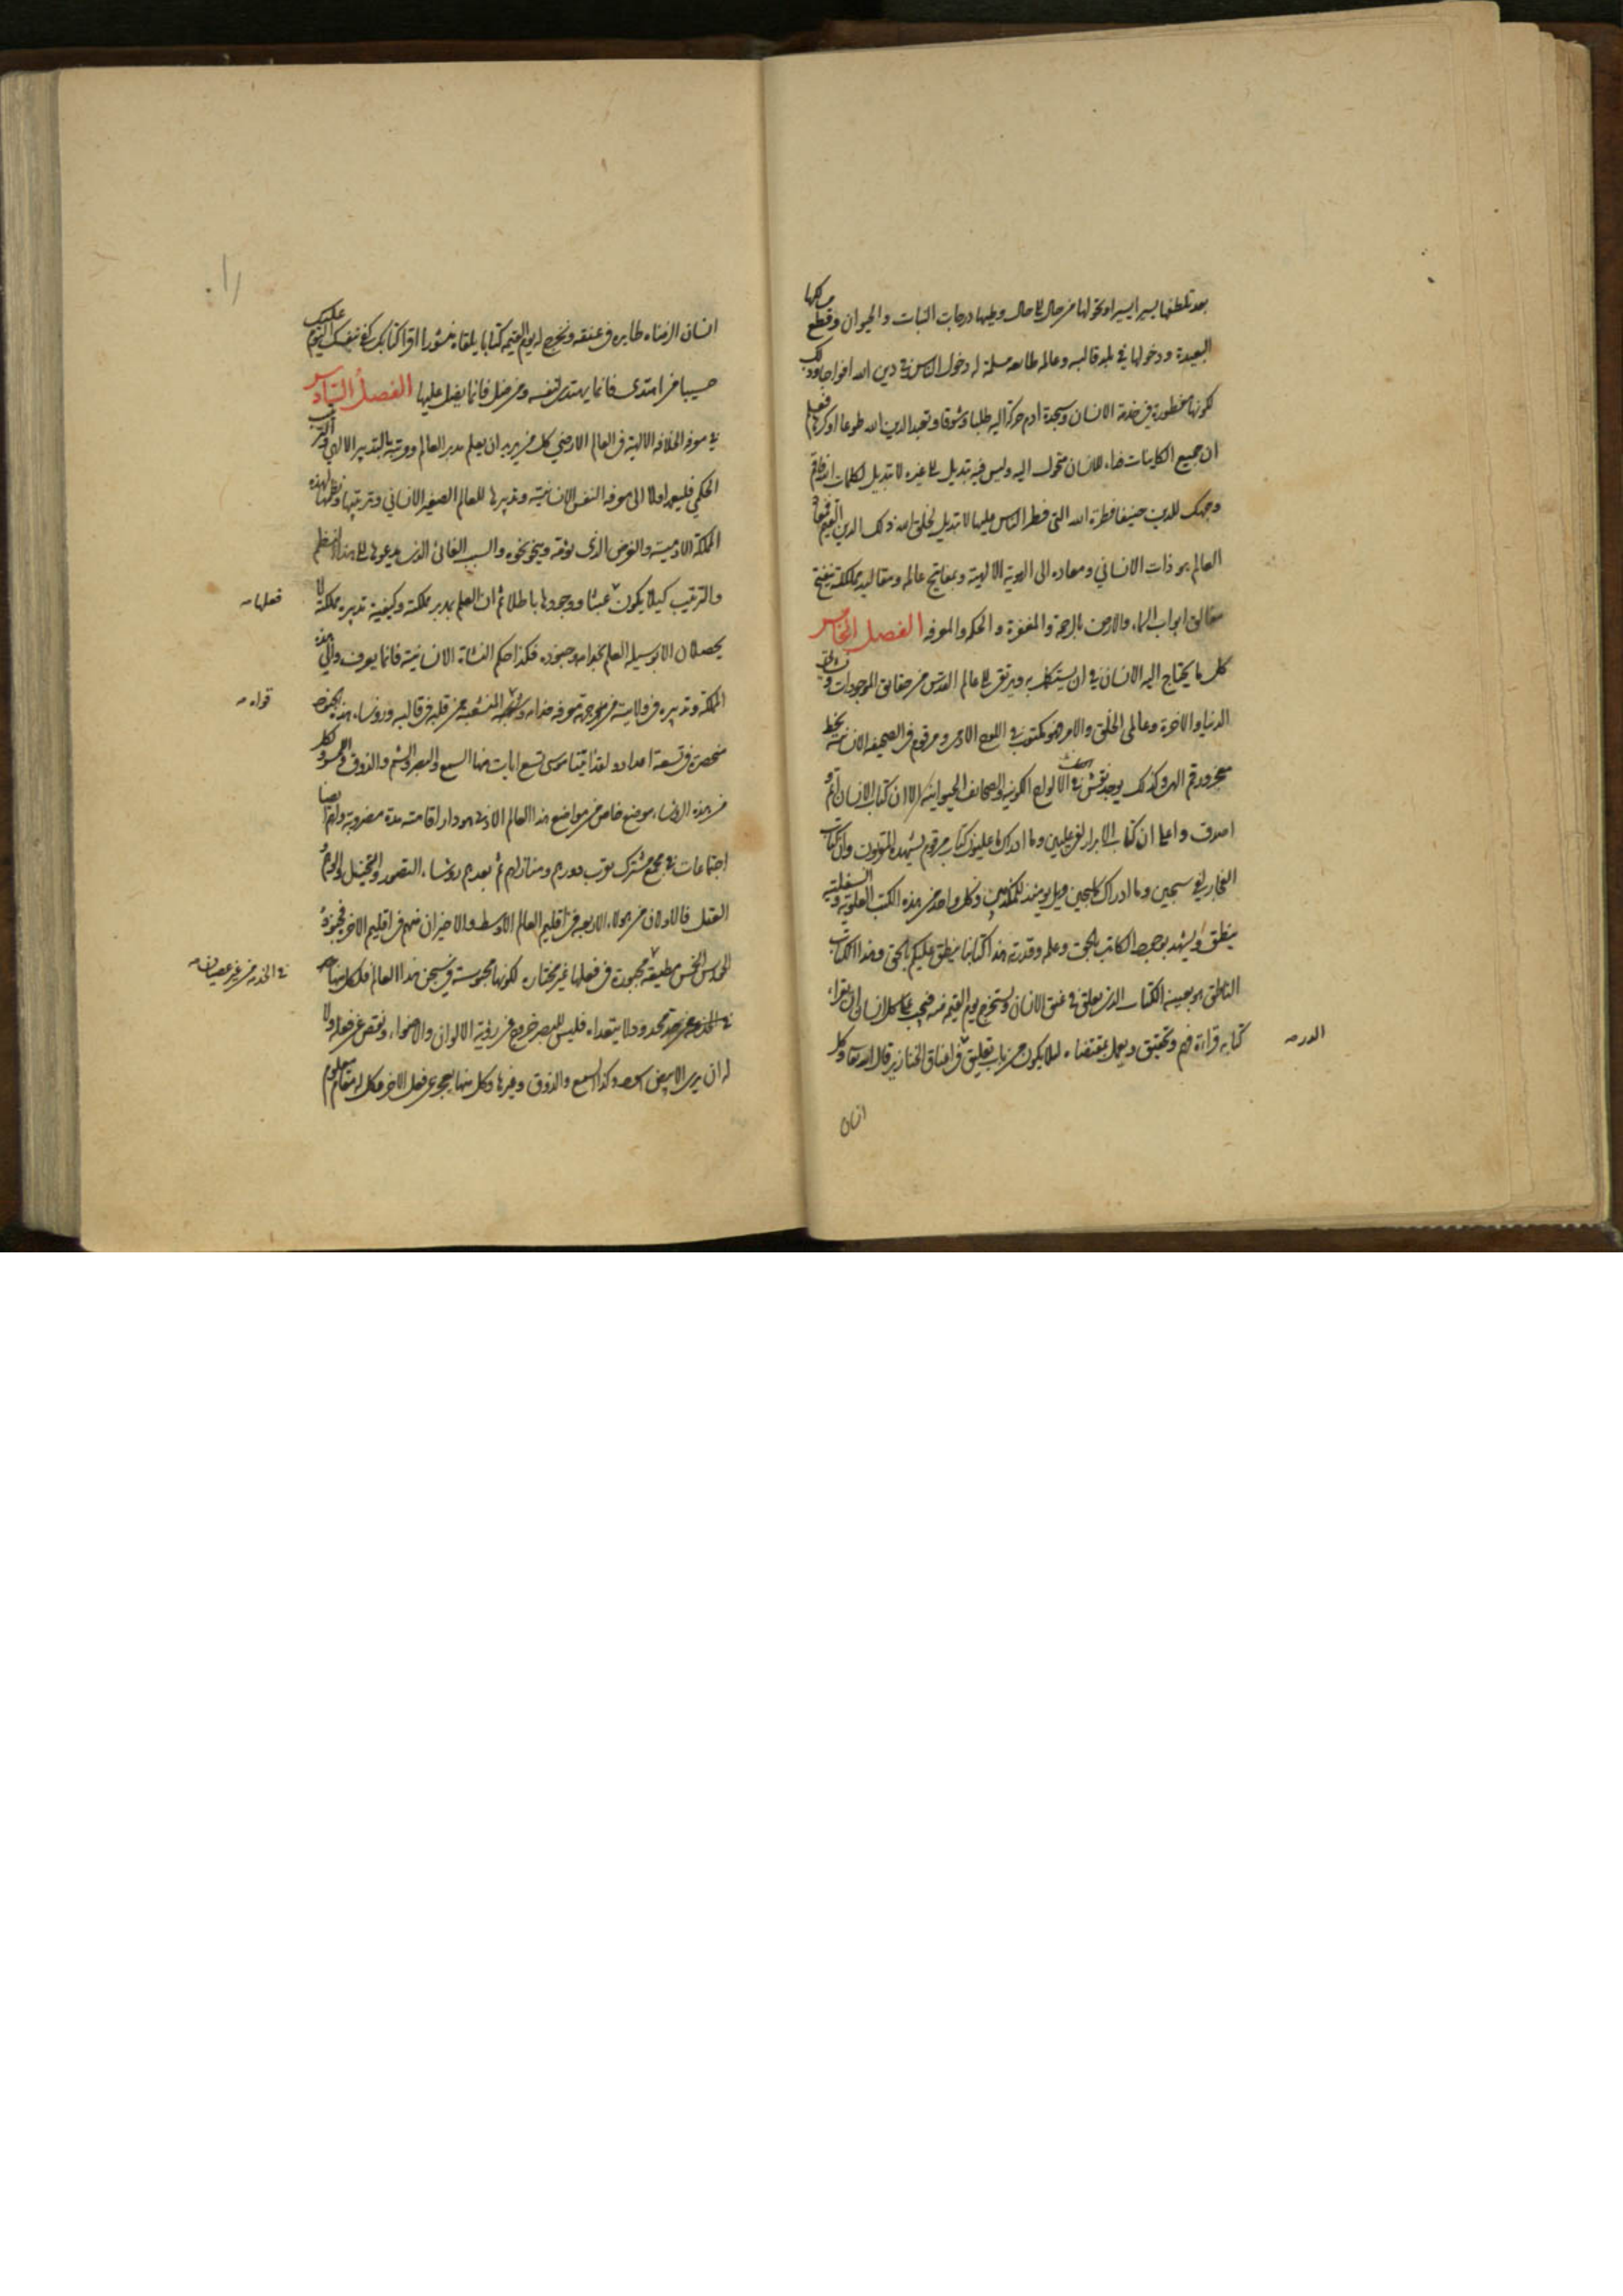 بعد تلطفها يسيرا يسيرا وتحولها من حال الى حال وطيها درجات النبات والحيوان وقطع مسالكها
البعيدة ودخولها في بلد قالبه وعالمه طائعة مسلمة له دخول الناس في دين الله افواجا وذلك
لكونها مفطورة في خدمة الانسان وسجدة ادم حركة اليه طلبا وشوقا وتعبدا لدين الله طوعا او كرها فعلم
ان جميع الكاينات غذاء للانسان متحول اليه وليس فيه تبديل الى غيره لا تبديل لكلمات الله فاقم
وجهك للدين حنيفا فطرة الله التى فطر الناس عليها لا تبديل لخلق الله ذلك الدين القيم
العالم هو ذات الانساني ومعاده الى الهوية الالهية وبمفاتيح عالمه ومقاليد مملكته ينفتح
مغالق ابواب السماء والارض بالرحمة والمغفرة والحكمة والمعرفة الفصل الخامس
كل ما يحتاج اليه الانسان في ان يستكمل به ويرتقي الى عالم القدس من حقايق الموجودات
الدنيا والاخرة وعالمى الخلق والامر فهو مكتوب في اللوح الادمى ومرقوم في الصحيفة الانسانية بخط
رقم الهى وكذلك يوجد نقش في الالواح الكونية والصحائف الحيوانية الا ان كتاب الانسان اتم و
اصدق واعلم ان كتاب الابرار لفي عليين وما ادراك ما عليون كتاب مرقوم يشهده المقربون وان كتاب
الفجار لفي سجين وما ادراك ما سجين ويل يومئذ للمكذبين وكل واحد من هذه الكتب العلوية والسفلية
ينطق ويشهد بوجود الكاتب الحق وعلمه وقدرته هذا كتابنا ينطق عليكم بالحق وهذا الكتاب
الناطق هو بعينه الكتاب الذى يعلق في عنق الانسان ويستخرج يوم القيمة منه فيجب على كل انسان ان يقراء
كتابه قراءة فهم وتحقيق ويعمل بمقتضاه لئلا يكون من باب تعليق في اعناق الخنازير قال الله تعا وكل
انسان
انسان الزمناه طايره في عنقه ونخرج له يوم القيمة كتابا يلقاه منشورا اقرا كتابك كفى بنفسك اليوم عليك
حسيبا من اهتدى فانما يهتدى لنفسه ومن ضل فانما يضل عليها الفصل السادس
في معرفة الخلافة الالهية في العالم الارضي كل من يريد ان يعلم مدبر العالم بالتدبير الالهى والترتيب
الحكمي فليعمد اولا الى معرفة النفس الانسانية وتدبيرها للعالم الصغير الانساني وترتيبها ونظمها لهذه
المملكة الادمية والغرض الذى تؤمه وينحو نحوه والسبب الغائى الذى يدعوها الى هذا النظم
والترتيب كيلا يكون عبثا ووجودها باطلا ثم ان العلم بمدبر مملكة وكيفية تدبيره مملكته لا
فعلها
يحصلان الا بوسيلة العلم بخدامه وجنوده فكذا حكم النشاة الانسانية فانما يعرف والى هذه
المملكة وتدبيره في ولايته من جهة معرفة خدامه المنشعبة من قلبه في قالبه ورؤساء هذه الجنود
قواه
منحصرة في تسعة اعداد ولقد اتينا موسى تسع ايات منها السمع والبصر والشم والذوق واللمس ولكل
من هذه الرؤساء موضع خاص من مواضع هذا العالم الادنى هو دار اقامته مدة مضروبة ولهم ايضا
اجتماعات في مجمع مشترك يقرب دورهم ومنازلهم ثم بعدهم رؤساء التصور والتخيل والوهم و
العقل فالاولان من هؤلاء الاربعة في اقليم العالم الاوسط والاخيران منهم في اقليم الاخر فجنود
الحواس الخمس مطيعة مجبورة في فعلها غير مختارة لكونها محبوسة في سجن هذا العالم فلكل منها
في الخدمة من غير عصيان
حد محدود لا يتعداه فليس للبصر خروج عن رؤية الالوان والاضواء ولا
له ان يرى الابيض اسود وكذا السمع والذوق وغيرها وكل منها عن فعل الاخر وكل له مقام معلوم